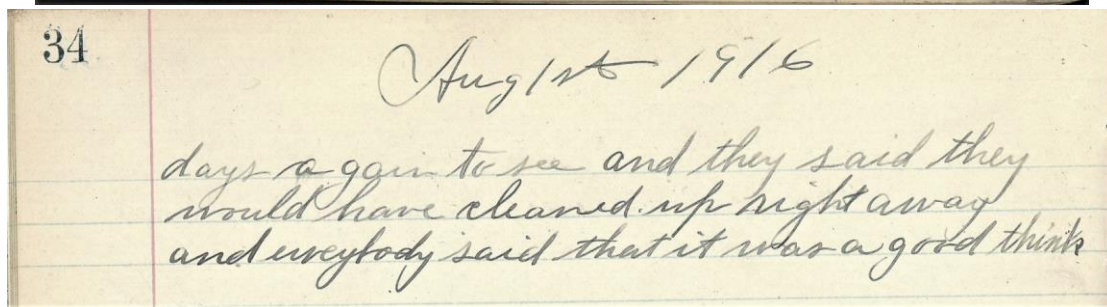 34
Aug 1st 1916
days again to see and they said they
would have cleaned up right away
and eveybody said that it was a good think